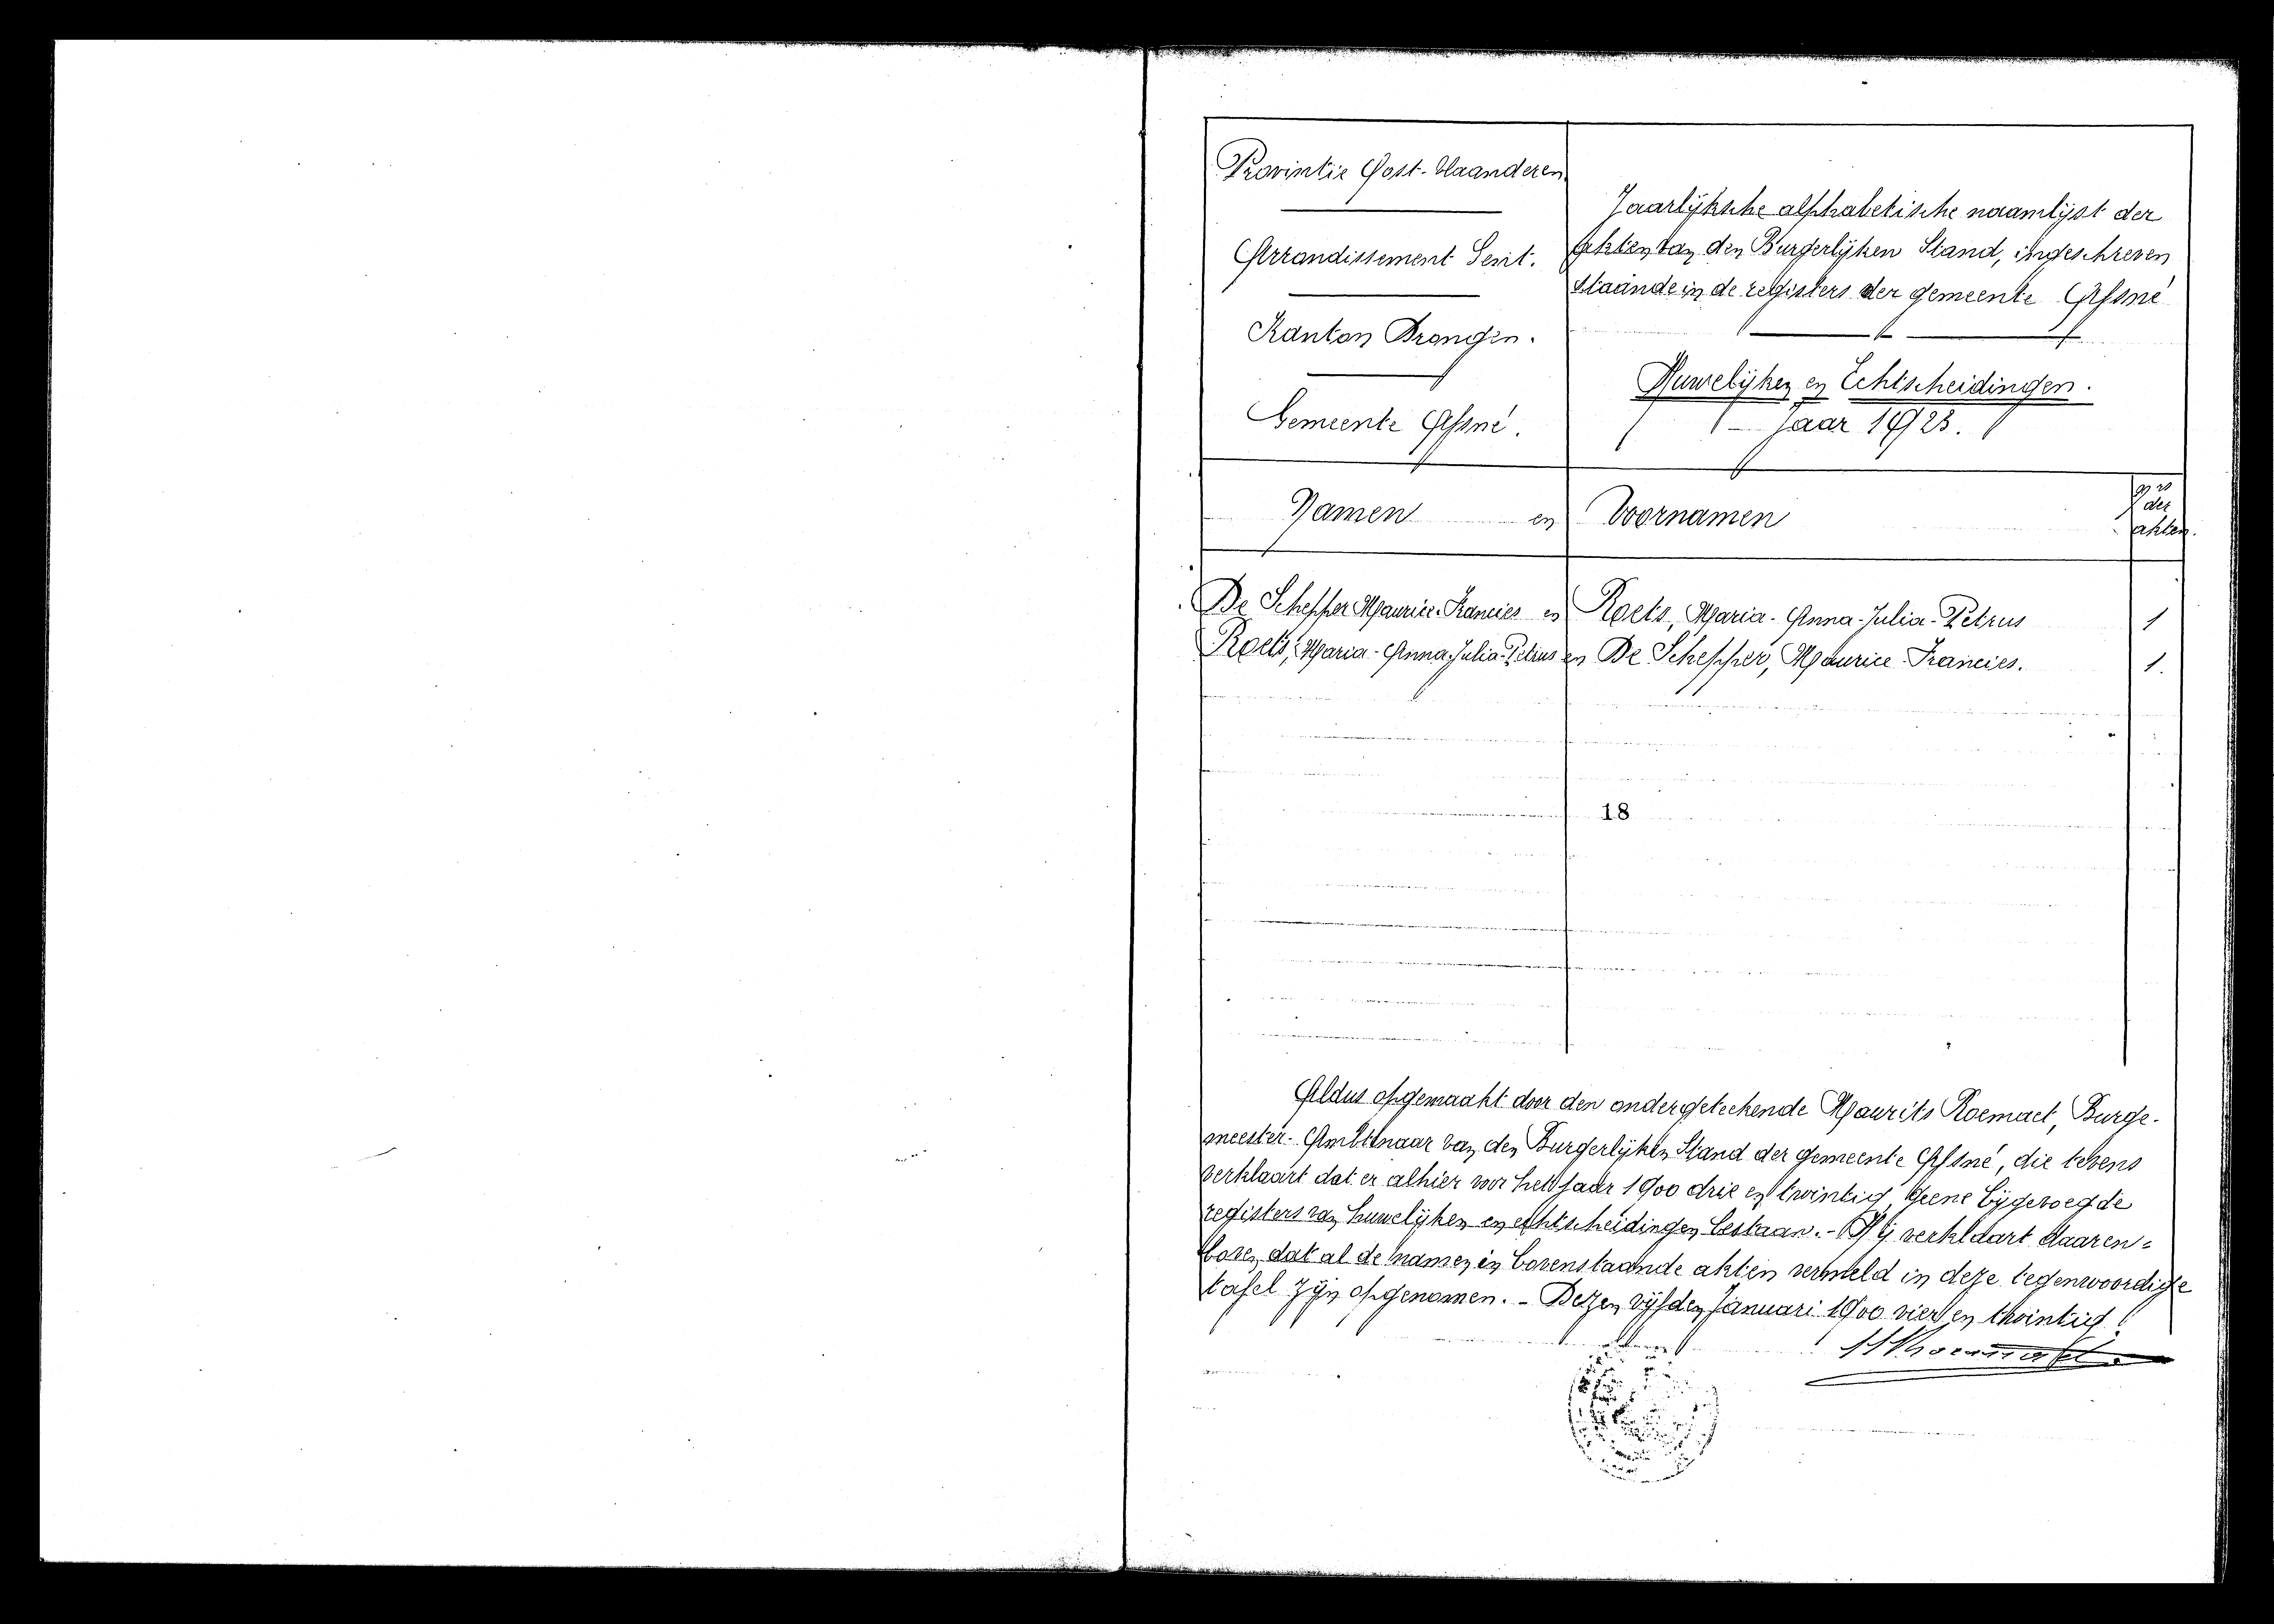 Provintie Oost-Vlaanderen
Arrondissement Gent.
Kanton Drongen.
Gemeente Afsné.
Jaarlijksche alphabetische naamlijst der
akten van den Burgerlijken Stand, ingeschreven
staande in de registers der gemeente Afsné
Huwelijken en Echtscheidingen.
Jaar 1923.
Namen en Voornamen
nrs
der
akten.
De Schepper Maurice-Francies en Roets, Maria-Anna-Julia-Petrus 1
Roets, Maria-Anna-Julia-Petrus en De Schepper, Maurice-Francies. 1.
18
Aldus opgemaakt door den ondergeteekende Maurits Roemaet, Burge-
meester-Ambtenaar van den Burgerlijken Stand der gemeente Afsné, die tevens
verklaart dat er alhier voor het jaar 1900 drie en twintig, geene bijgevoegde
registers van huwelijken en echtscheidingen bestaan. - Hij verklaart daaren=
boven dat al de namen in bovenstaande akten vermeld in deze tegenwoordige
tafel zijn opgenomen. - Dezen vijfden Januari 1900 vier en twintig.